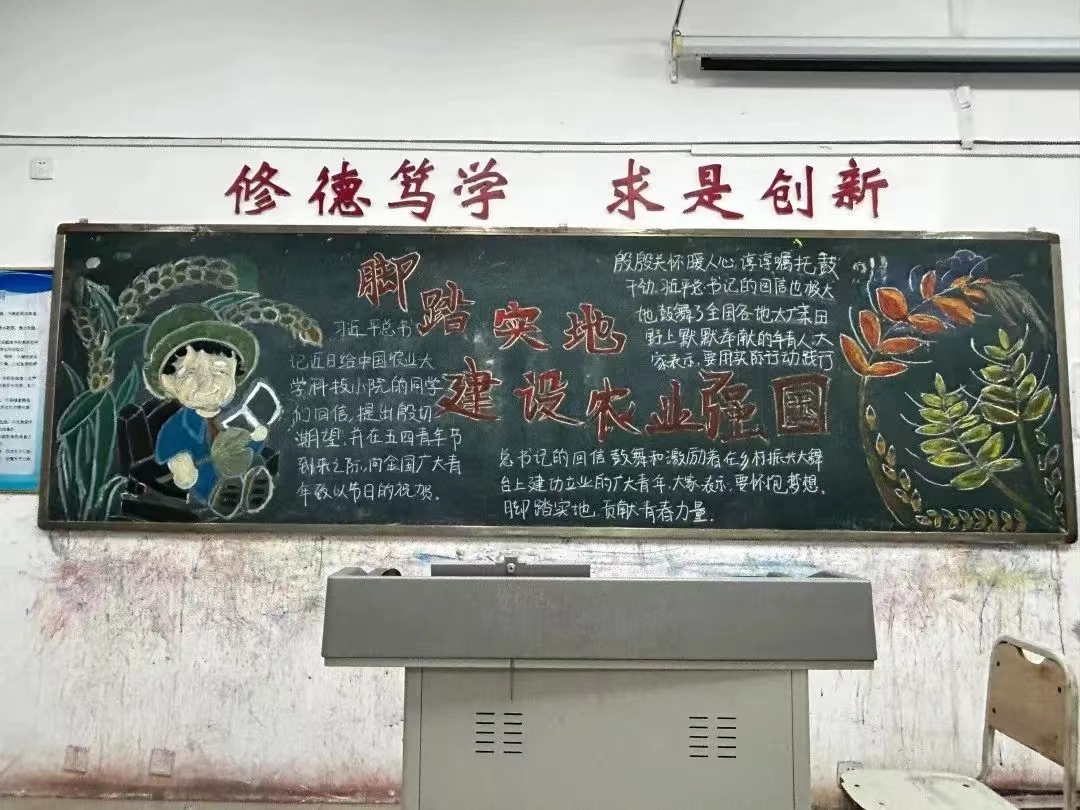 修德笃学 求是创新
脚踏实地
建设农业强国
习近平总书
记近日给中国农业大
学科技小院的同学
们回信,提出殷切
期望,并在五四青年节
到来之际,向全国广大青
年致以节日的祝贺。
殷殷关怀暖人心,谆谆嘱托鼓
干劲.习近平总书记的回信也极大
地鼓舞了全国各地太广菜田
野上默默奉献的年青人,大
家表示,要用实际行动践行
总书记的回信鼓舞和激励着在乡村振兴大舞
台上建功立业的广大青年.大家表示,要怀抱梦想,
脚踏实地,贡献青春力量.